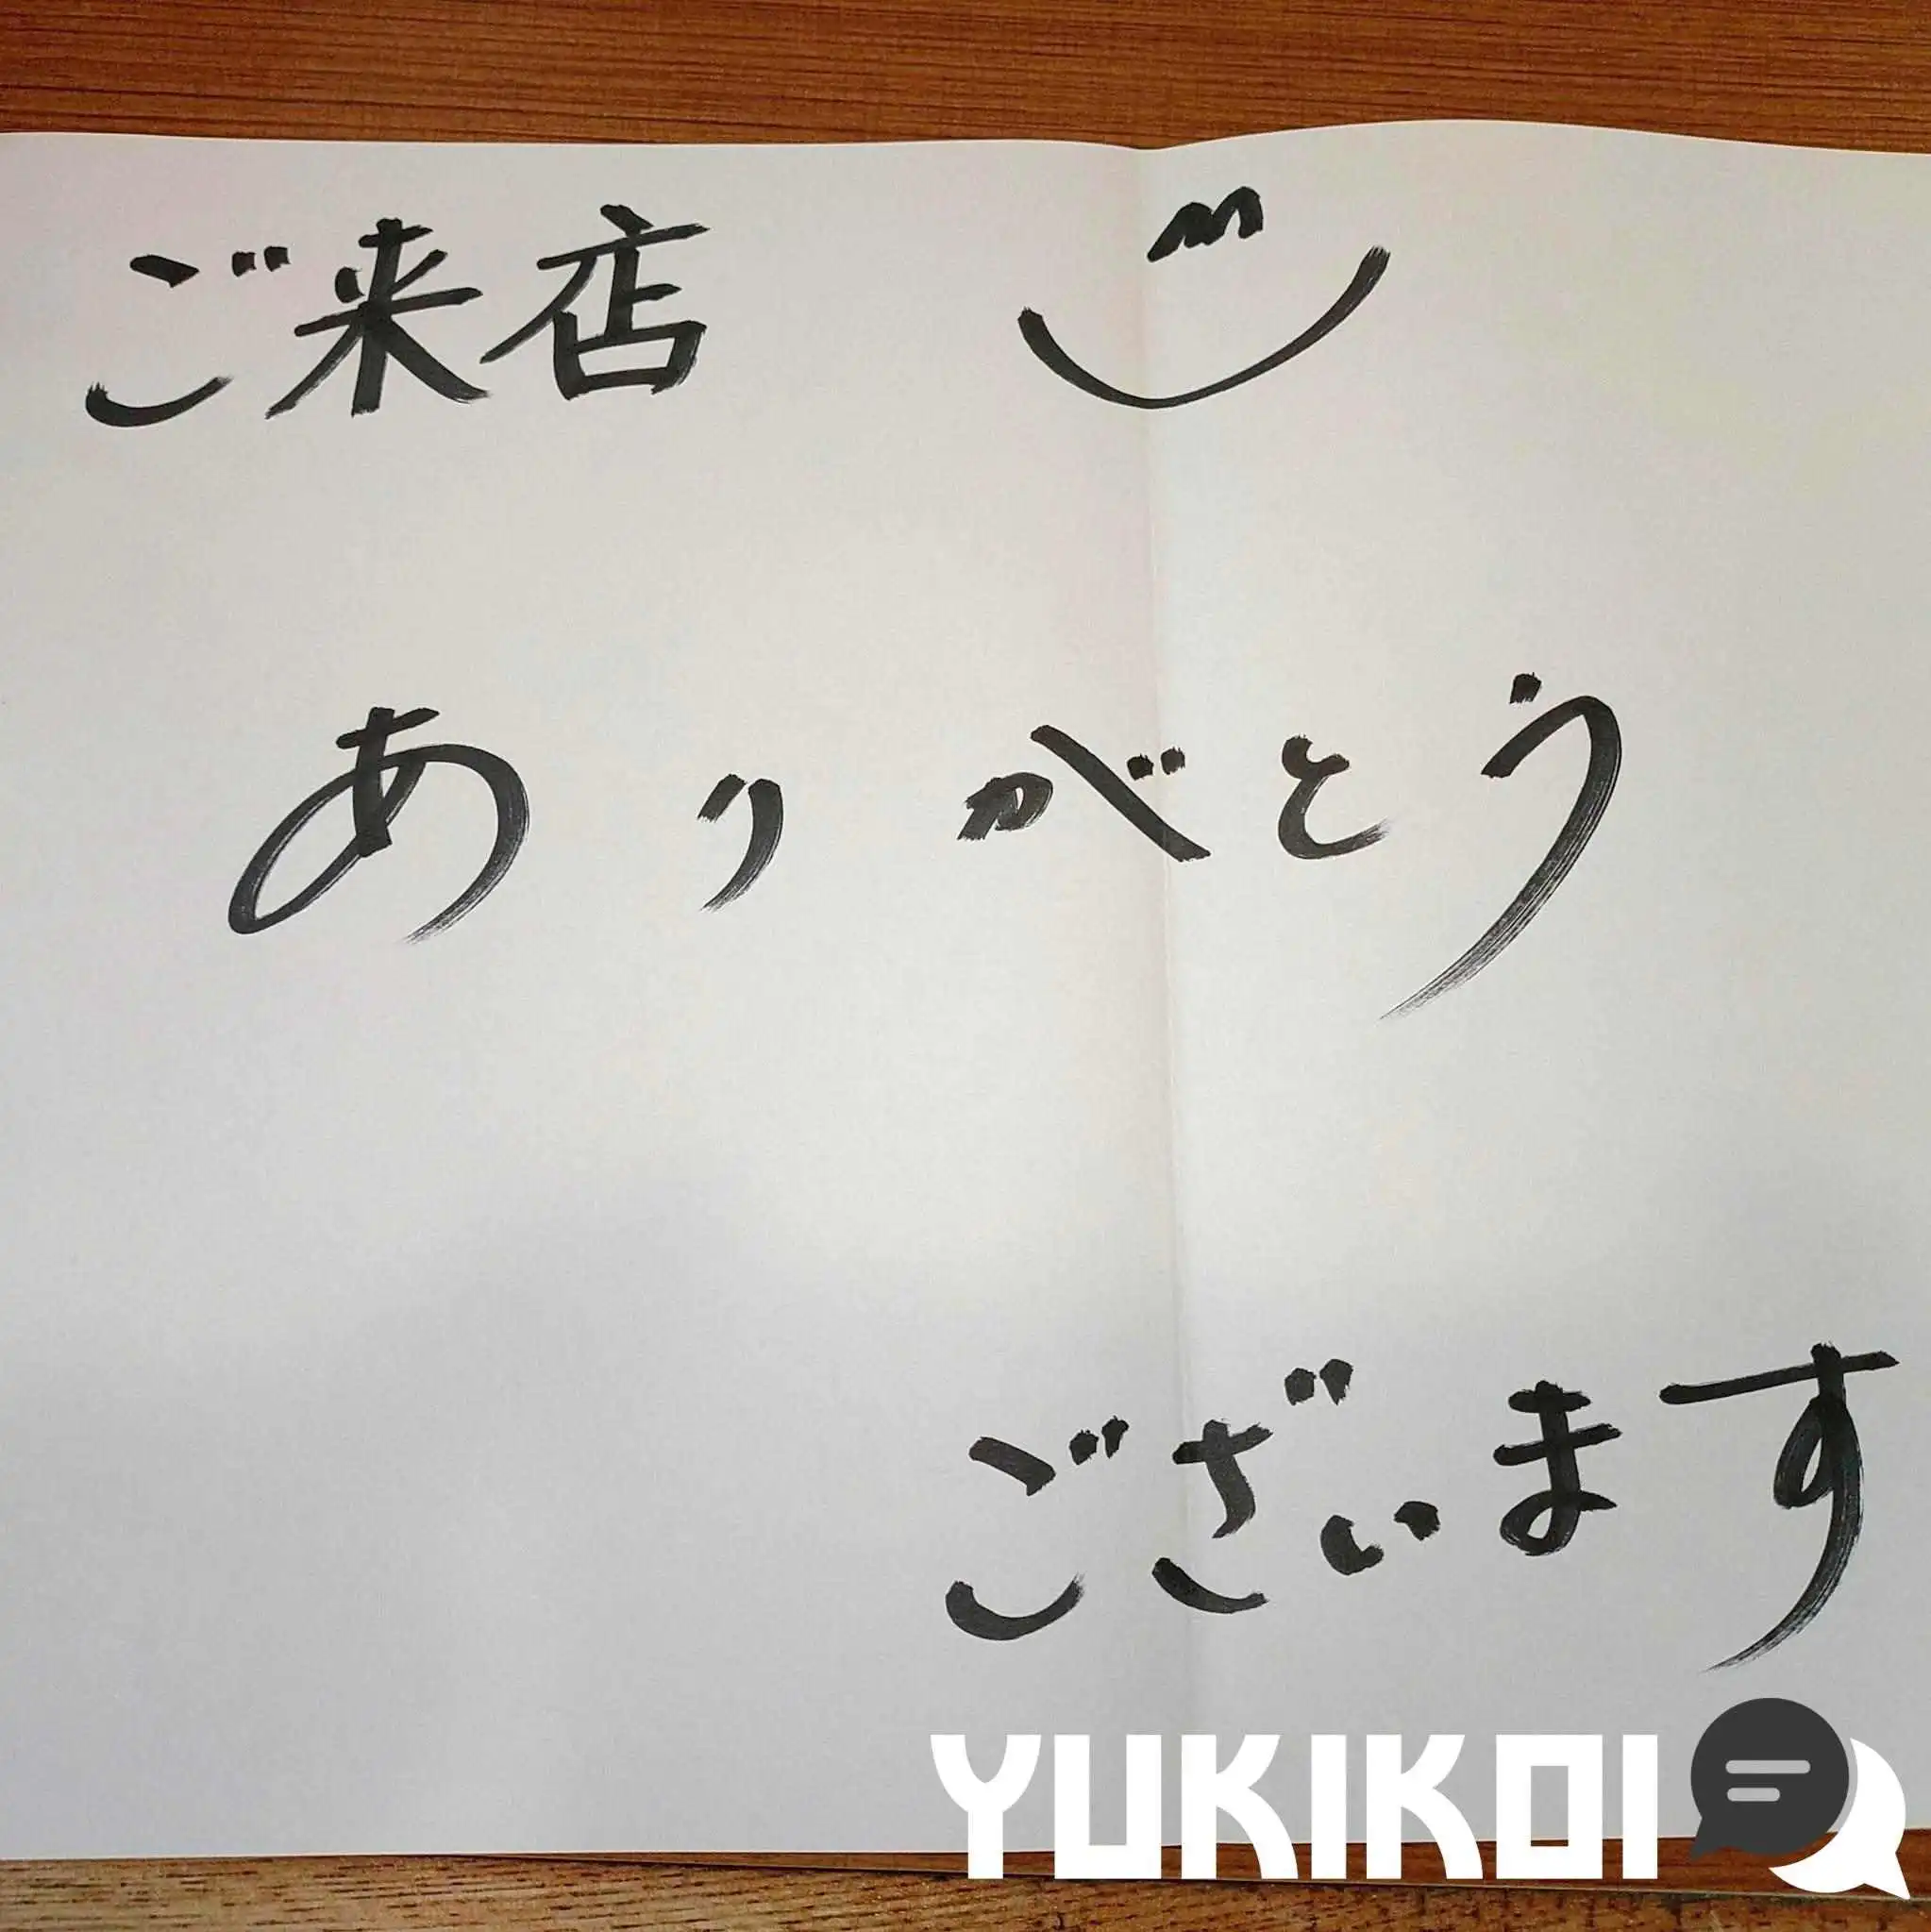 ご来店
ありがとう
ございます
YUKIKOI